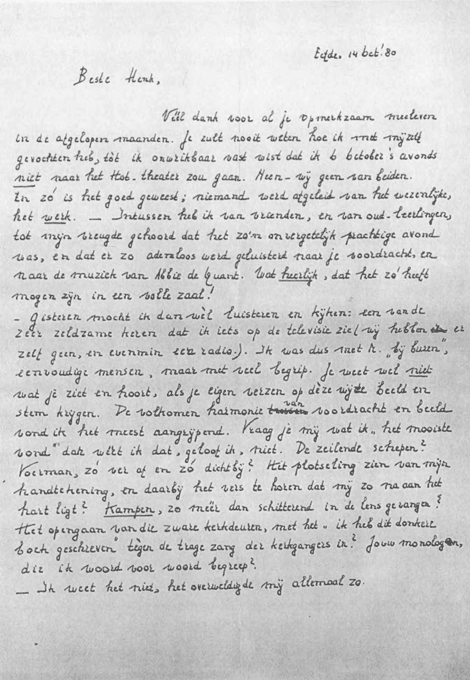 Eefde, 14 oct! 80
Beste Henk,
Véél dank voor al je opmerkzaam meeleven
in de afgelopen maanden. Je zult nooit weten hoe ik met mijzelf
gevochten heb, tót ik onwrikbaar vast wist dat ik 6 october's avonds
niet naar het Hot-theater zou gaan. Neen - wij geen van beiden.
En zó is het goed geweest; niemand werd afgeleid van het wezenlijke,
het werk. — Intussen heb ik van vrienden, en van oud-leerlingen,
tot mijn vreugde gehoord dat het zo'n onvergetelijk prachtige avond
was, en dat er zo ademloos werd geluisterd naar je voordracht, en
naar de muziek van Abbie de Quant. Wat heerlijk, dat het zó heeft
mogen zijn in een volle zaal!
- Gisteren mocht ik dan wèl luisteren en kijken: een van de
zeer zeldzame keren dat ik iets op de televisie zie (wij hebben er
zelf geen, en evenmin een radio.). Ik was dus met h. "bij buren",
eenvoudige mensen, maar met veel begrip. Je weet wel niet
wat je ziet en hoort, als je eigen verzen op dèze wijze beeld en
stem krijgen. De volkomen harmonie van voordracht en beeld
vond ik het meest aangrijpend. Vraag je mij wat ik "het mooiste
vond" dan wéét ik dat, geloof ik, niet. De zeilende schepen?
Voerman, zó ver of en zó dichtbij? Het plotseling zien van mijn
handtekening, en daarbij het vers te horen dat mij zo na aan het
hart ligt? Kampen, zo méér dan schitterend in de lens gevangen?
Het opengaan van die zware kerkdeuren, met het "ik heb dit donkere
boek geschreven" tégen de trage zang der kerkgangers in? Jouw monologen,
die ik woord voor woord begreep?
— Ik weet het niet, het overweldigde mij allemaal zo.